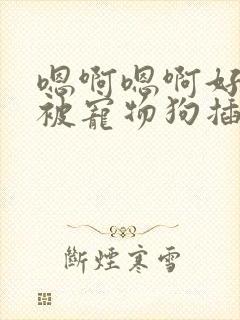 嗯啊嗯啊好
被寵物狗插
斷煙寒雪